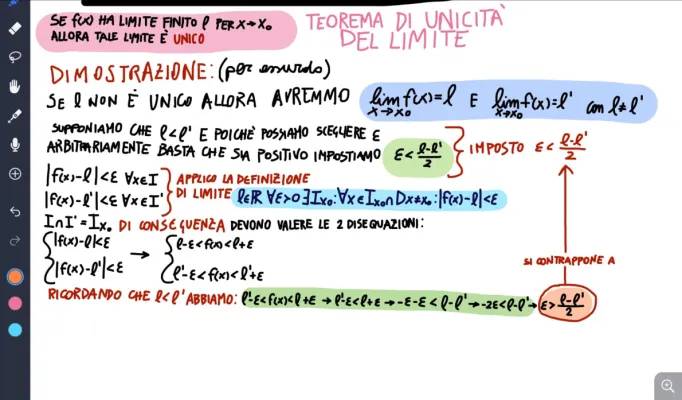 SE f(x) HA LIMITE FINITO ℓ PER X→X₀
ALLORA TALE LIMITE È UNICO
TEOREMA DI UNICITÀ
DEL LIMITE
DIMOSTRAZIONE: (per assurdo)
SE ℓ NON È UNICO ALLORA AVREMMO lim f(x)=ℓ E lim f(x)=ℓ' con ℓ≠ℓ'
x→x₀ x→x₀
SUPPONIAMO CHE ℓ<ℓ' E POICHÈ POSSIAMO SCEGLIERE ε
ARBITRARIAMENTE BASTA CHE SIA POSITIVO IMPOSTIAMO ε < (ℓ-ℓ')/2 } IMPOSTO ε < (ℓ-ℓ')/2
|f(x)-ℓ|<ε ∀x∈I'
|f(x)-ℓ'|<ε ∀x∈I'
APPLICO LA DEFINIZIONE
DI LIMITE ℓ∈ℝ ∀ε>0 ∃Ix₀:∀x∈Ix₀∩Dx≠x₀:|f(x)-ℓ|<ε
I∩I'=Ix₀ DI CONSEGUENZA DEVONO VALERE LE 2 DISEQUAZIONI:
{|f(x)-ℓ|<ε → {ℓ-ε<f(x)<ℓ+ε
{|f(x)-ℓ'|<ε {ℓ'-ε<f(x)<ℓ'+ε
SI CONTRAPPONE A
RICORDANDO CHE ℓ<ℓ' ABBIAMO: ℓ'-ε<f(x)<ℓ+ε → ℓ'-ε<ℓ+ε → -ε-ε<ℓ-ℓ' → -2ε<ℓ-ℓ' → ε > (ℓ-ℓ')/2